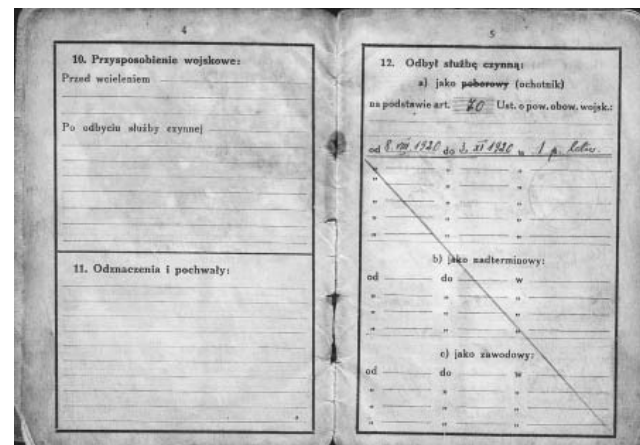 4
10. Przysposobienie wojskowe:
Przed wcieleniem
Po odbyciu służby czynnej
11. Odznaczenia i pochwały:
5
12. Odbył służbę czynną:
a) jako poborowy (ochotnik)
na podstawie art. 70 Ust. o pow. obow. wojsk.:
od 8. VIII 1920 do 3. XI 1920 w 1 p. lotn.
" " "
" " "
" " "
" " "
b) jako nadterminowy:
od do w
" " "
" " "
" " "
c) jako zawodowy:
od do w
" " "
" " "
" " "